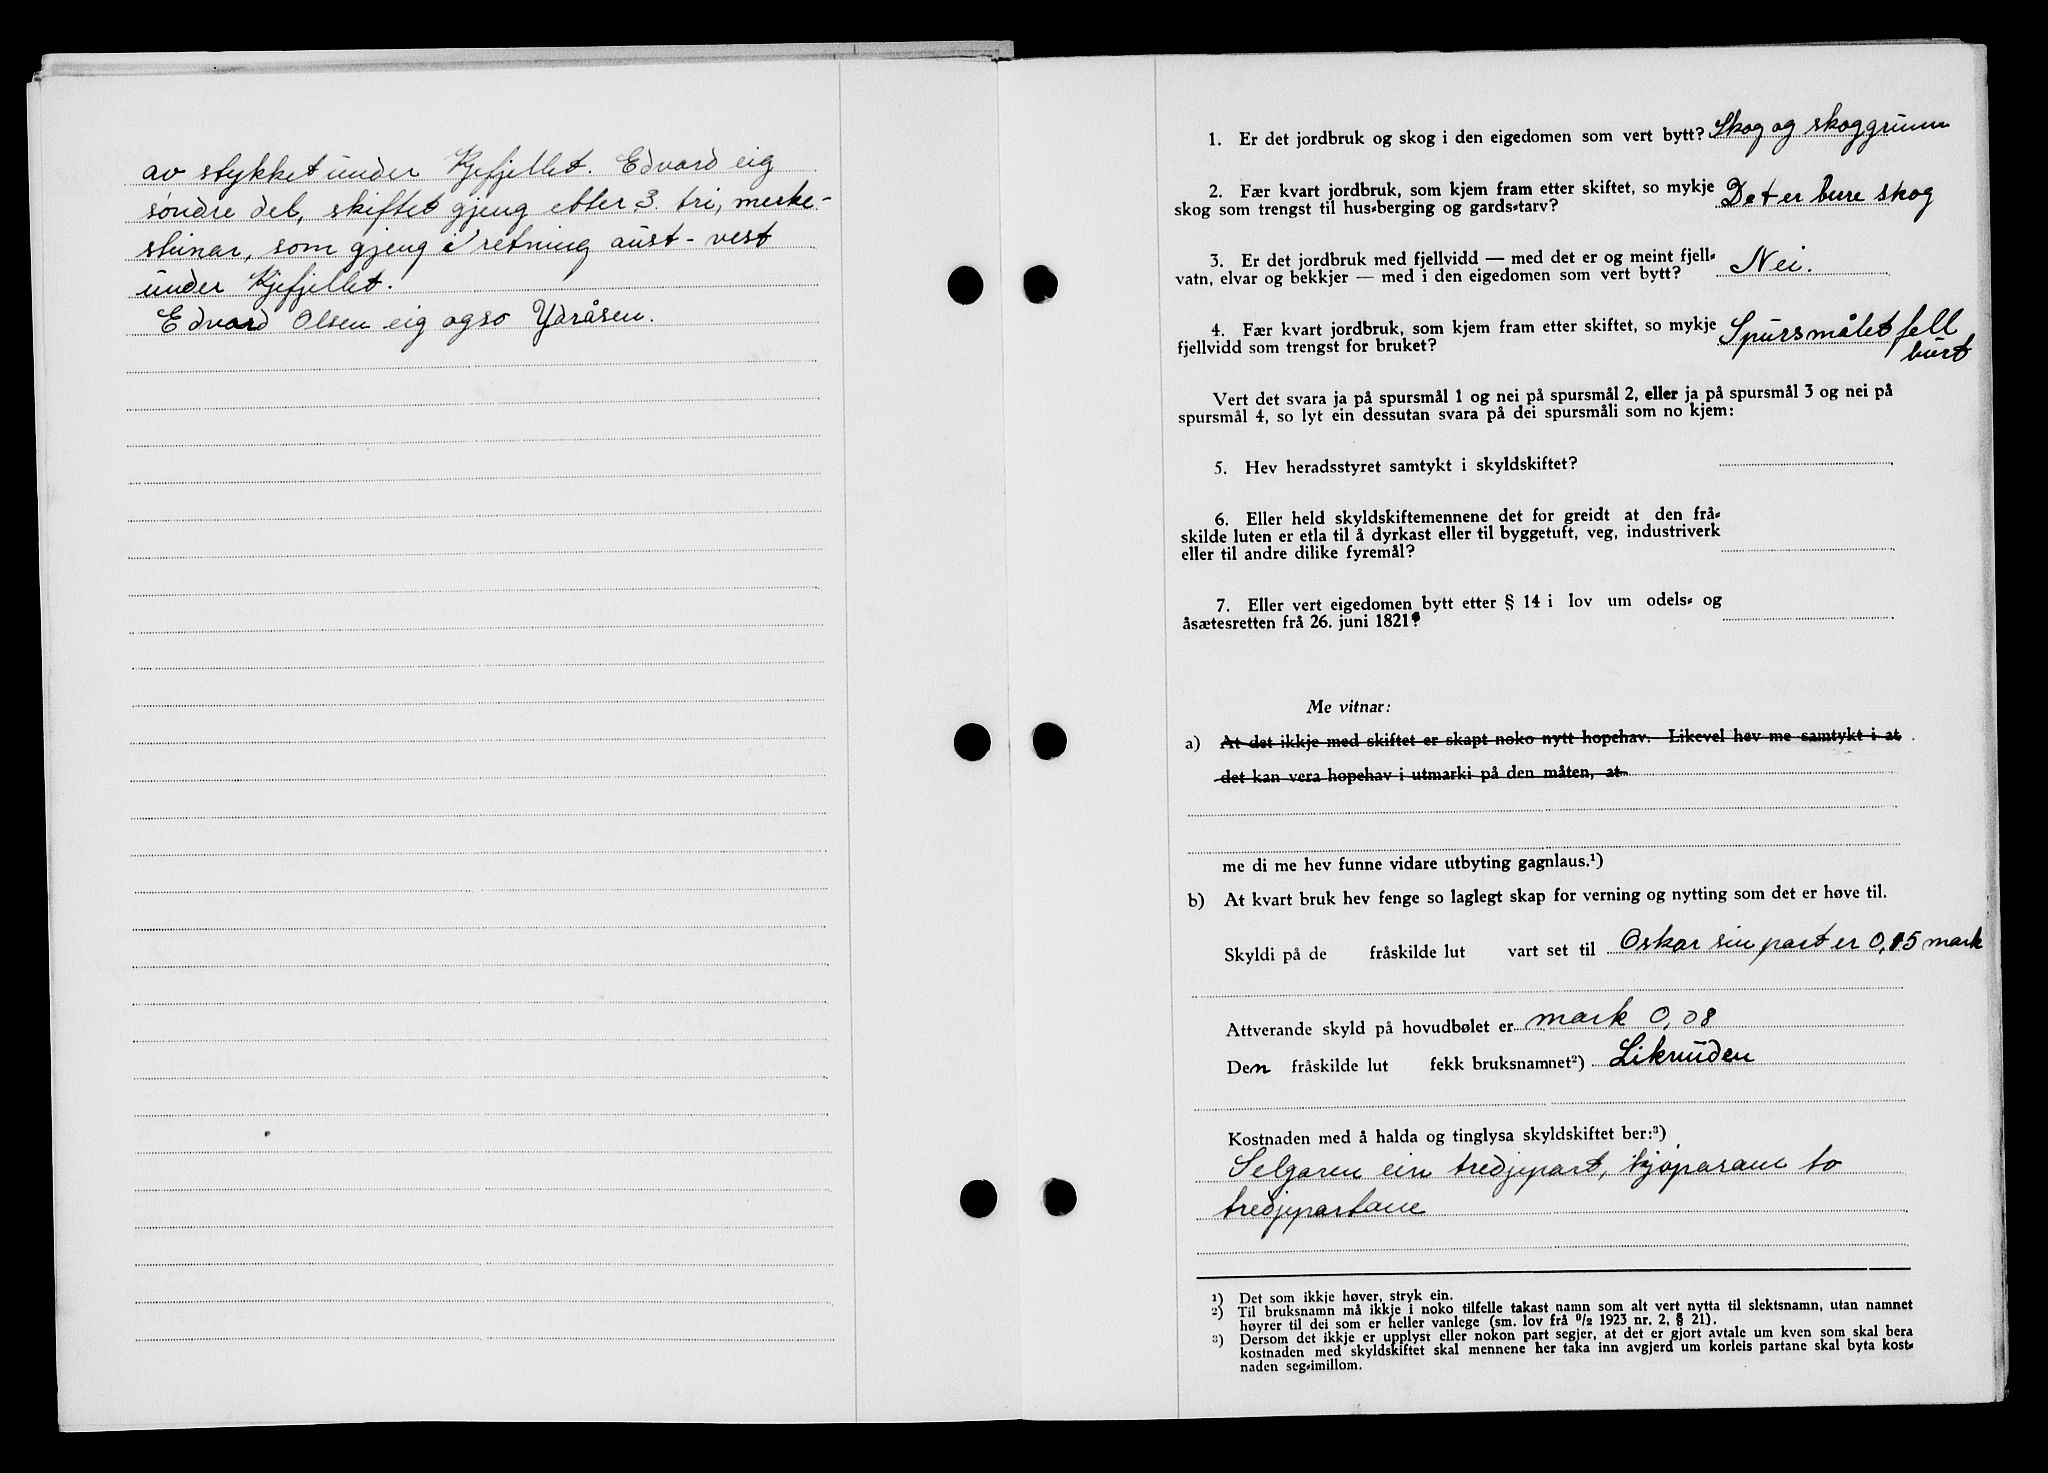 av stykket under Kjefjellet. Edvard eig
søndre del, skiftet gjeng etter 3. tri, merke-
steinar, som gjeng i retning aust - vest
under Kjefjellet.
Edvard Olsen eig ogso Ydråsen.
1. Er det jordbruk og skog i den eigedomen som vert bytt? Skog og skoggrunn
2. Fær kvart jordbruk, som kjem fram etter skiftet, so mykje
skog som trengst til hus-berging og gards-tarv? Det er bere skog
3. Er det jordbruk med fjellvidd — med det er og meint fjell-
vatn, elvar og bekkjer — med i den eigedomen som vert bytt? Nei.
4. Fær kvart jordbruk, som kjem fram etter skiftet, so mykje
fjellvidd som trengst for bruket? Spursmålet fell
burt
Vert det svara ja på spursmål 1 og nei på spursmål 2, eller ja på spursmål 3 og nei på
spursmål 4, so lyt ein dessutan svara på dei spursmåli som no kjem:
5. Hev heradsstyret samtykt i skyldskiftet?
6. Eller held skyldskiftemennene det for greidt at den frå-
skilde luten er etla til å dyrkast eller til byggetuft, veg, industriverk
eller til andre dilike fyremål?
7. Eller vert eigedomen bytt etter § 14 i lov um odels- og
åsætesretten frå 26. juni 1821?
Me vitnar:
a) At det ikkje med skiftet er skapt noko nytt hopehav. Likevel hev me samtykt i at
det kan vera hopehav i utmarki på den måten, at
me di me hev funne vidare utbyting gagnlaus.¹)
b) At kvart bruk hev fenge so laglegt skap for verning og nytting som det er høve til.
Skyldi på de fråskilde lut vart set til Oskar sin part er 0,15 mark
Attverande skyld på hovudbølet er mark 0,08
Den fråskilde lut fekk bruksnamnet²) Liknuden
Kostnaden med å halda og tinglysa skyldskiftet ber:³)
Selgaren ein tredjepart, kjøparane to
tredjepartane
¹) Det som ikkje høver, stryk ein.
²) Til bruksnamn må ikkje i noko tilfelle takast namn som alt vert nytta til slektsnamn, utan namnet
høyrer til dei som er heller vanlege (sm. lov frå 9/2 1923 nr. 2, § 21).
³) Dersom det ikkje er upplyst eller nokon part segjer, at det er gjort avtale um kven som skal bera
kostnaden med skyldskiftet skal mennene her taka inn avgjerd um korleis partane skal byta kost-
naden seg-imillom.